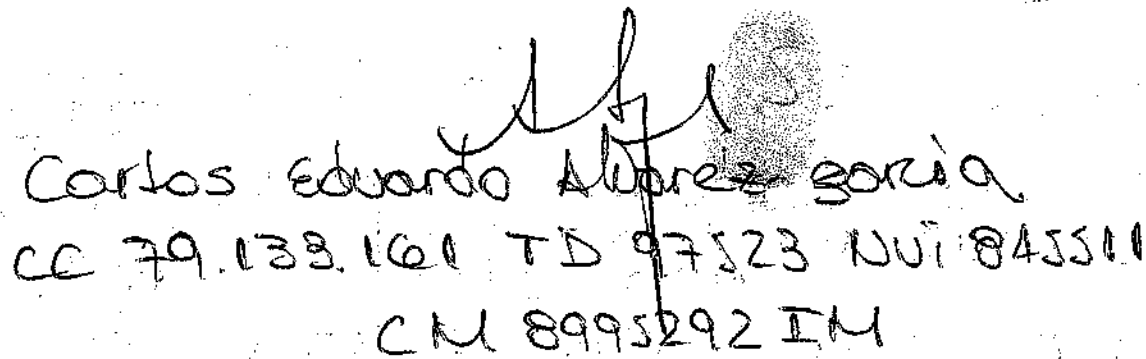 Carlos Eduardo Alvarez garcia
CC 79.133.161 TD 97523 NUi 845511
CM 8995292 IM